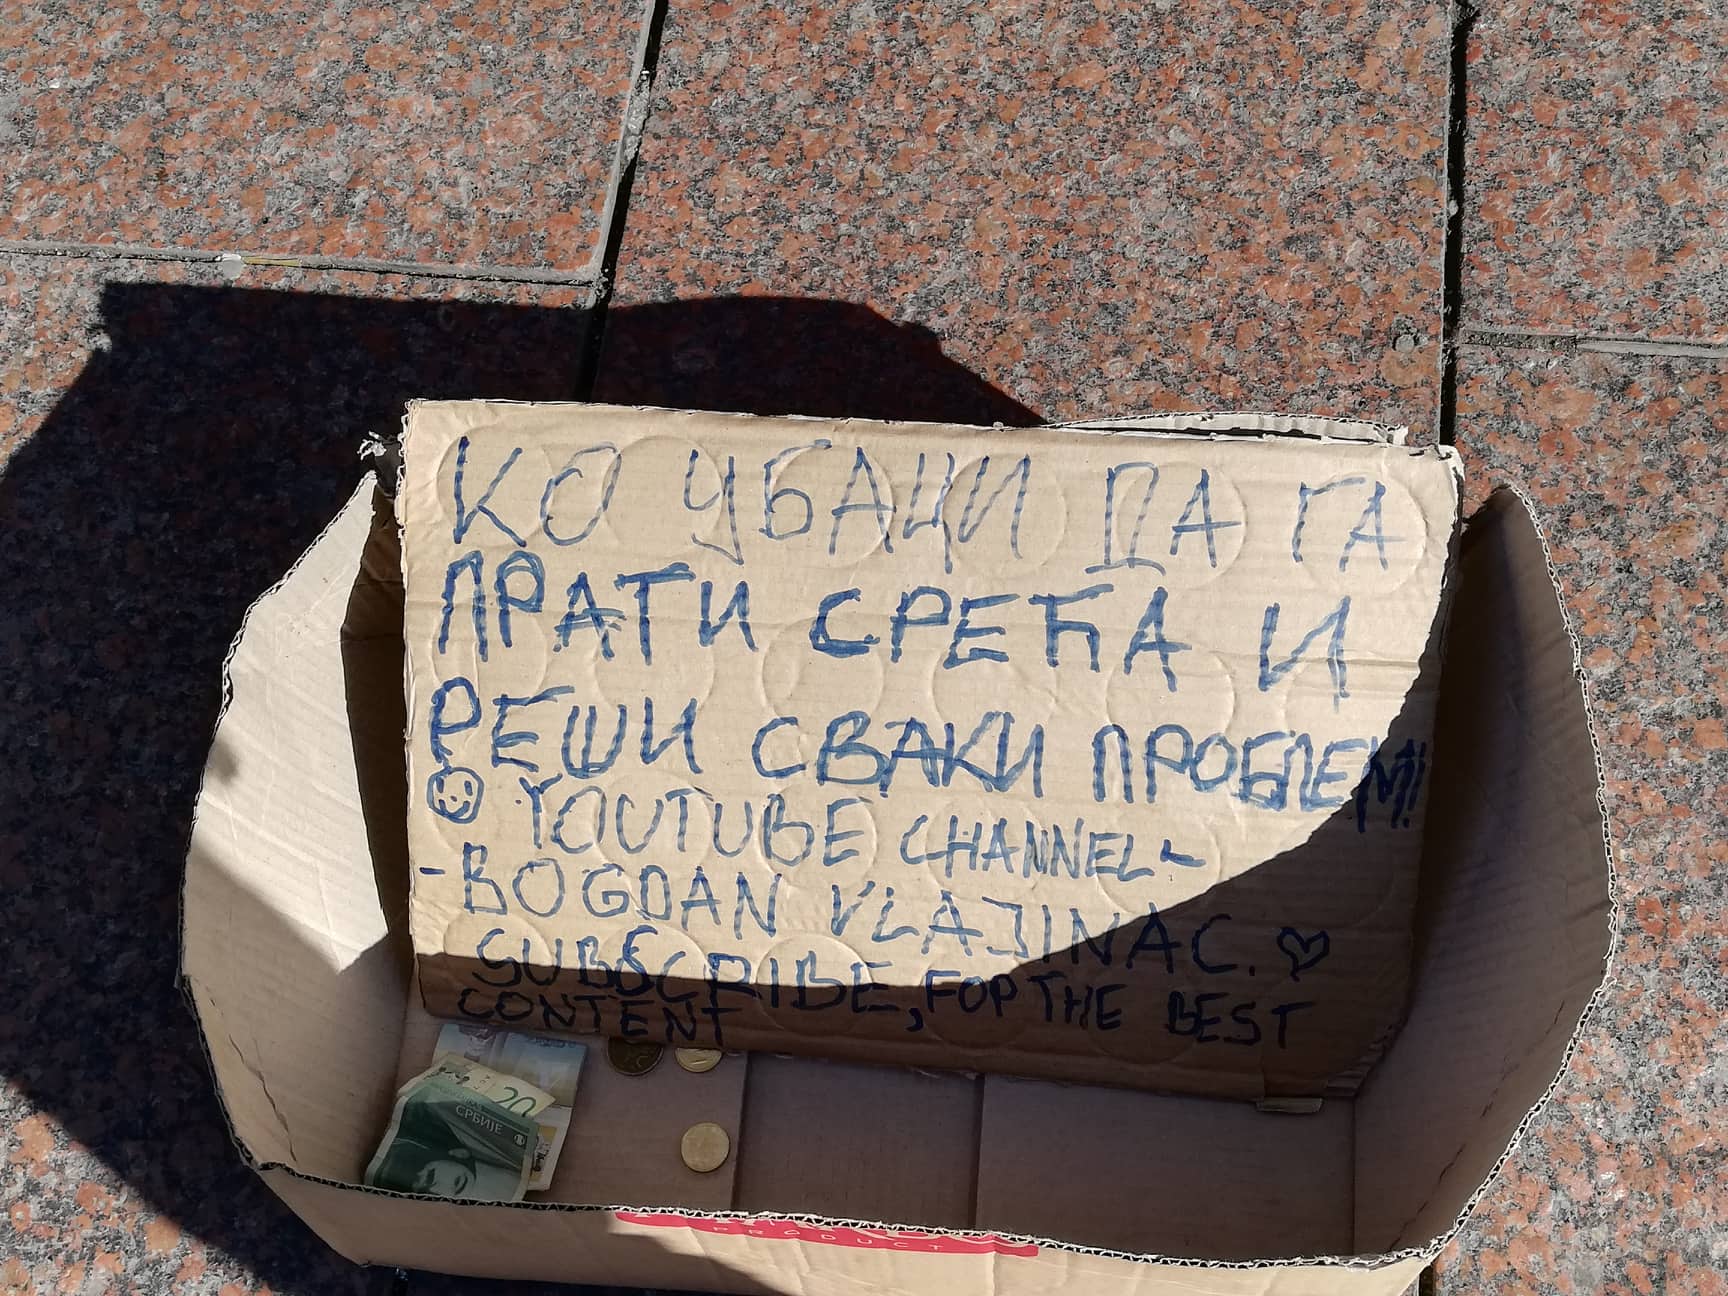 КО УБАЦИ ДА ГА
ПРАТИ СРЕЋА И
РЕШИ СВАКИ ПРОБЛЕМ!
YOUTUBE CHANNEL-
-BOGDAN VLAJINAC.
SUBSCRIBE, FOR THE BEST
CONTENT
20
СРБИЈЕ
PRODUCT